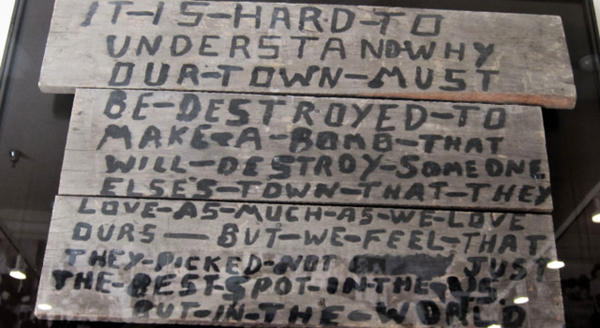 IT-IS-HARD-TO
UNDERSTANDWHY
OUR-TOWN-MUST
BE-DESTROYED-TO
MAKE-A-BOMB-THAT
WILL-DESTROY-SOMEONE
ELSE'S-TOWN-THAT-THEY
LOVE-AS-MUCH-AS-WE-LOVE
OURS — BUT-WE-FEEL-THAT
THEY-PICKED-NOT JUST
THE-BEST-SPOT-IN-THE-US.
BUT-IN-THE-WORLD